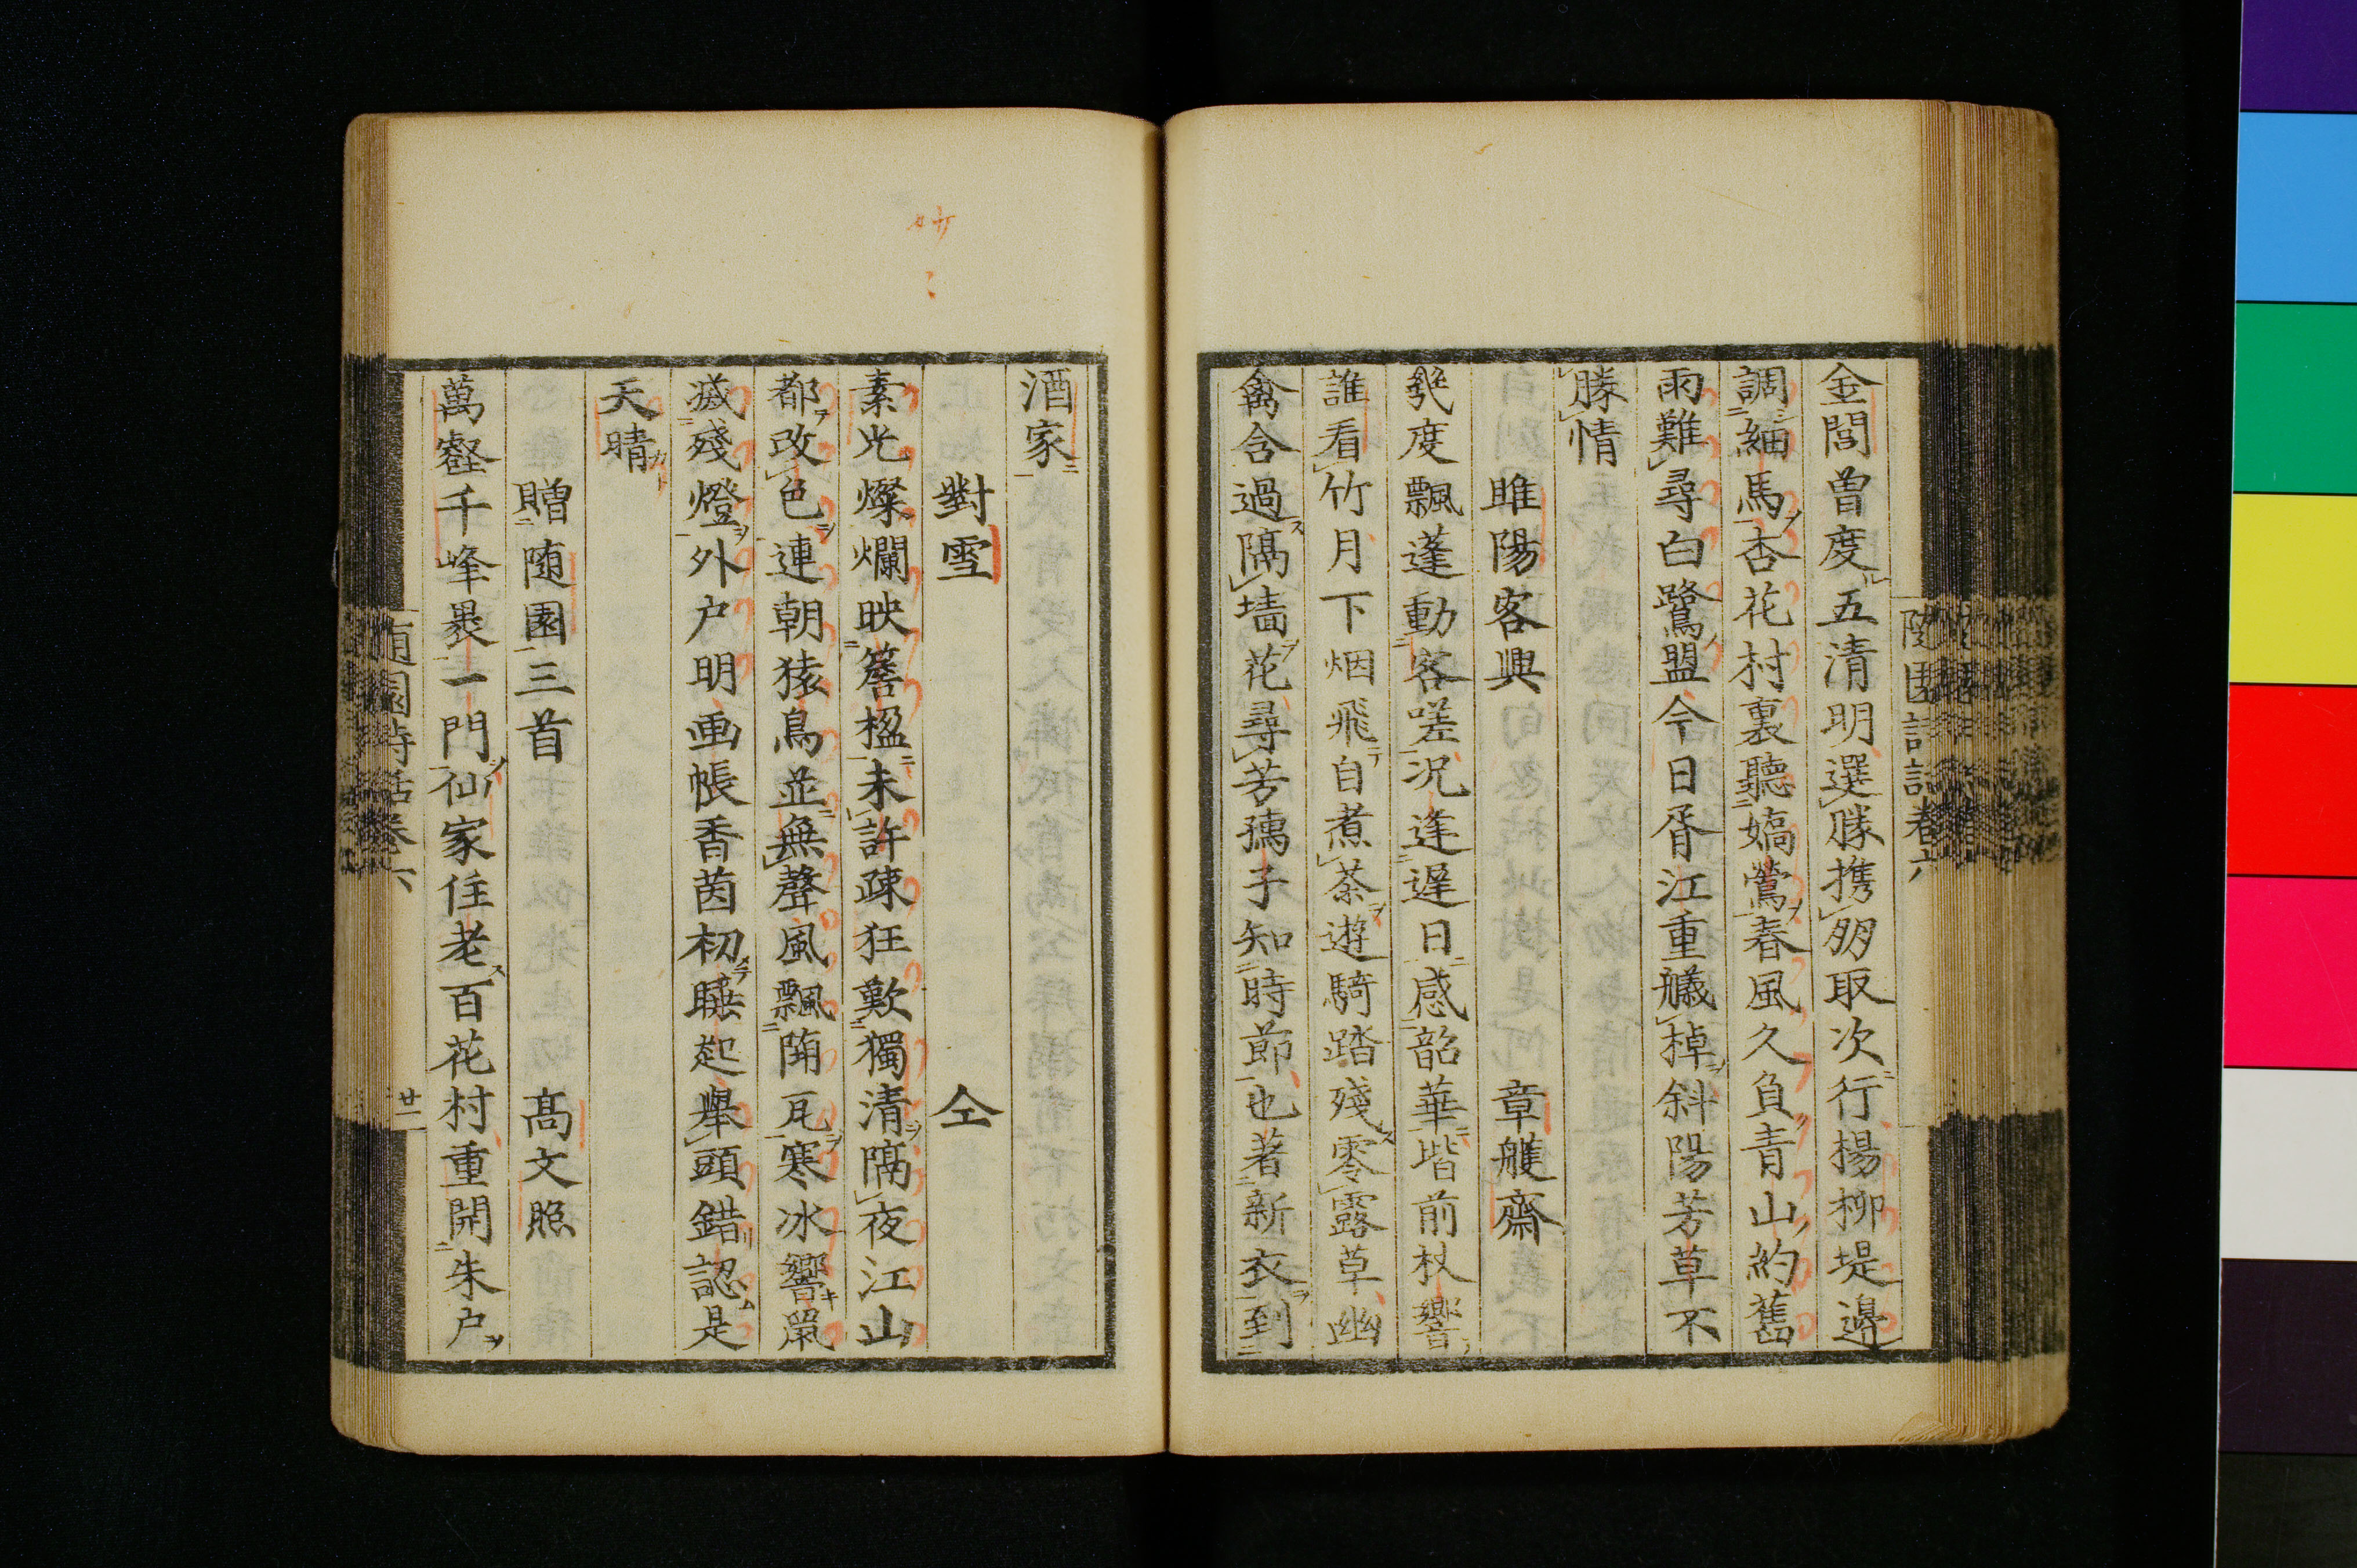 金閶曽度五清明選勝携朋取次行楊柳堤邊
調細馬杏花村裏聽嬌鶯春風久負青山約舊
雨難尋白鷺盟今日胥江重艤棹斜陽芳草不
勝情
睢陽客興 章艧齋
幾度飄蓬動客嗟况逢遅日感韶華堦前杖響
誰看竹月下烟飛自煮茶遊騎踏殘零露草幽
禽含過隔墻花尋芳孺子知時節也著新衣到
酒家
對雪 仝
素光燦爛映簷楹未許疎狂歎獨清隔夜江山
都改色連朝猿鳥並無聲風飄隋瓦寒冰響鼠
滅殘燈外户明画帳香茵初睡起擧頭錯認是
天晴
贈随園三首 髙文照
萬壑千峰裹一門仙家住老百花村重開朱户
随園詩話巻六
廿一
隨園詩話巻六
妙